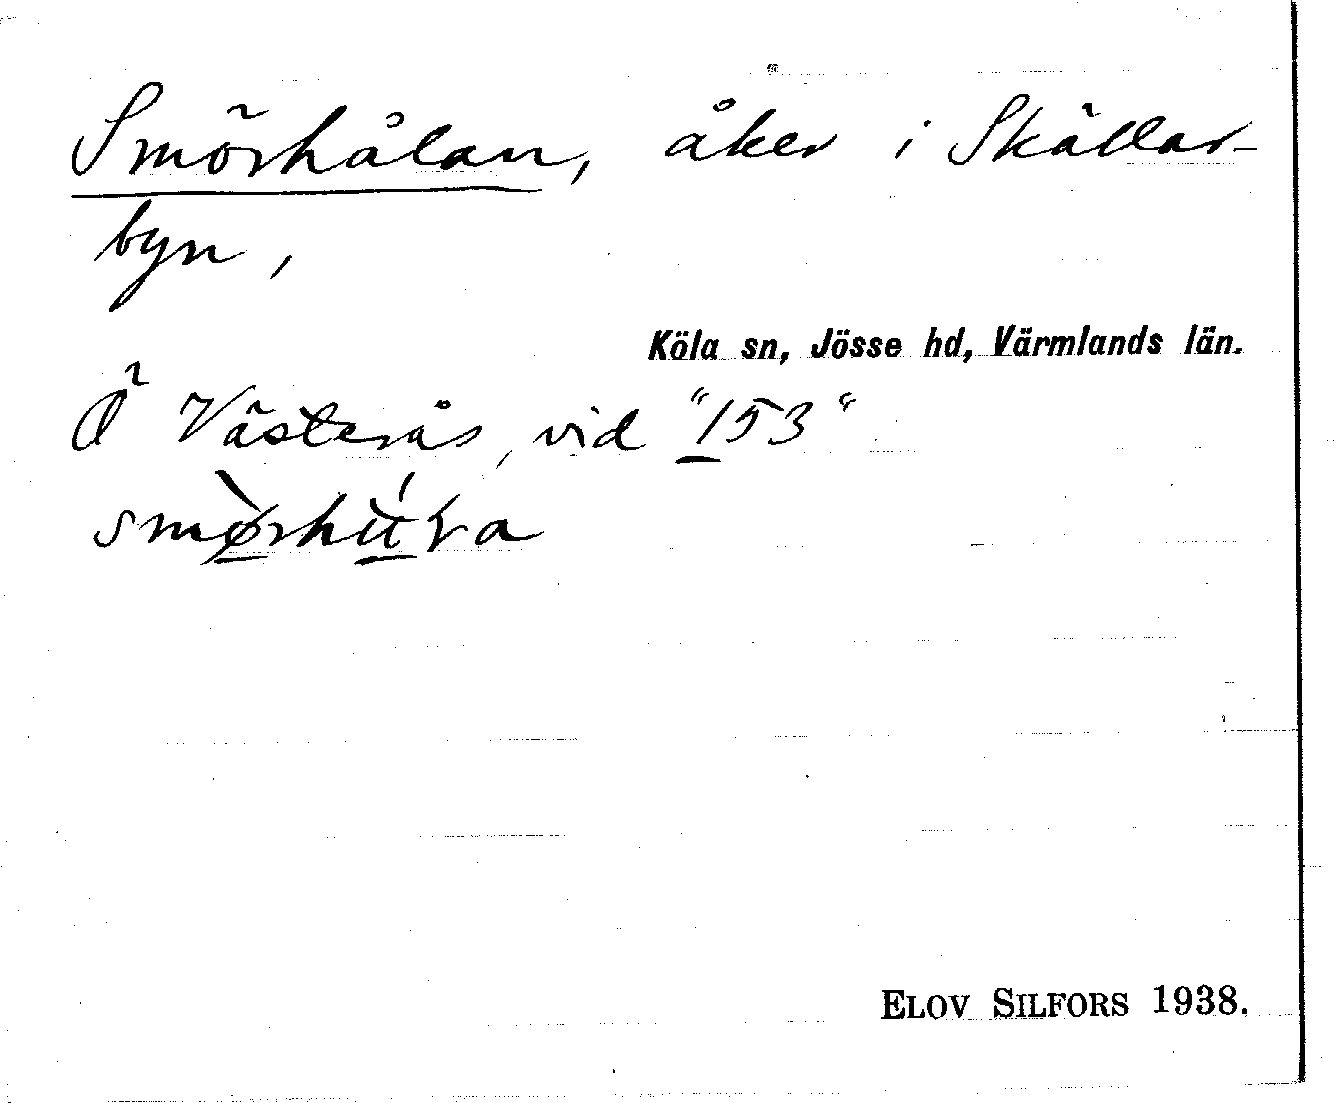 Smörhålan, åker i Skällar-
byn,
Köla sn, Jösse hd, Värmlands län.
Ö Västerås, vid "153"
ELOV SILFORS 1938.